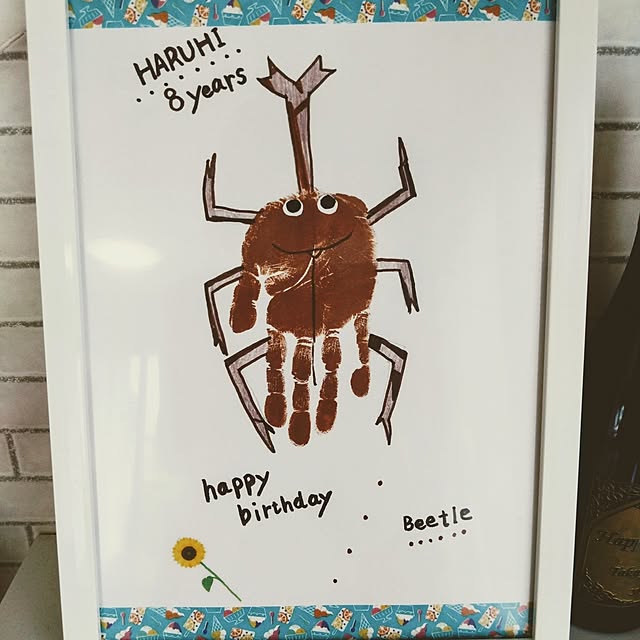 HARUHI
8 years
happy
birthday
Beetle
Happy